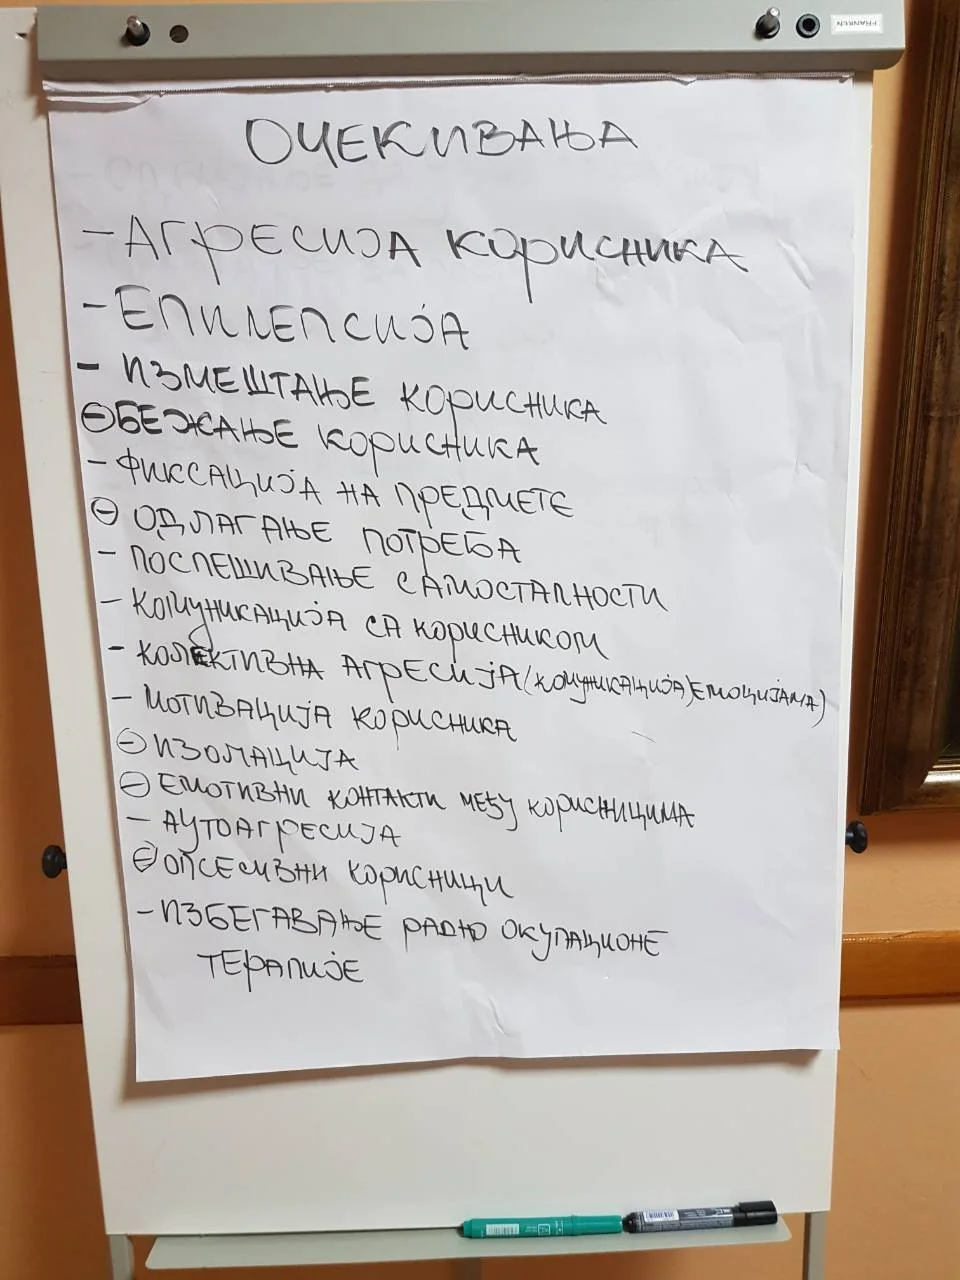 FRANKEN
ОЧЕКИВАЊА
- АГРЕСИЈА КОРИСНИКА
- ЕПИЛЕПСИЈА
- ИЗМЕШТАЊЕ КОРИСНИКА
- БЕЖАЊЕ КОРИСНИКА
- ФИКСАЦИЈА НА ПРЕДМЕТЕ
- ОДЛАГАЊЕ ПОТРЕБА
- ПОСПЕШИВАЊЕ САМОСТАЛНОСТИ
- КОМУНИКАЦИЈА СА КОРИСНИКОМ
- КОЛЕКТИВНА АГРЕСИЈА (КОМУНИКАЦИЈА) ЕМОЦИЈАМА)
- МОТИВАЦИЈА КОРИСНИКА
- ИЗОЛАЦИЈА
- ЕМОТИВНИ КОНТАКТИ МЕЂУ КОРИСНИЦИМА
- АУТОАГРЕСИЈА
- ОПСЕСИВНИ КОРИСНИЦИ
- ИЗБЕГАВАЊЕ РАДНО ОКУПАЦИОНЕ
ТЕРАПИЈЕ